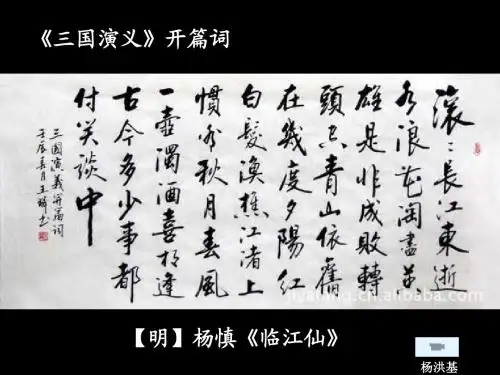 《三国演义》开篇词
滚〻長江東逝
水浪花淘盡英
雄是非成敗轉
頭空青山依舊
在幾度夕陽紅
白髮漁樵江渚上
慣看秋月春風
一壺濁酒喜相逢
古今多少事都
付笑談中
三國演義開篇詞
壬辰春月王书
【明】杨慎《临江仙》
杨洪基